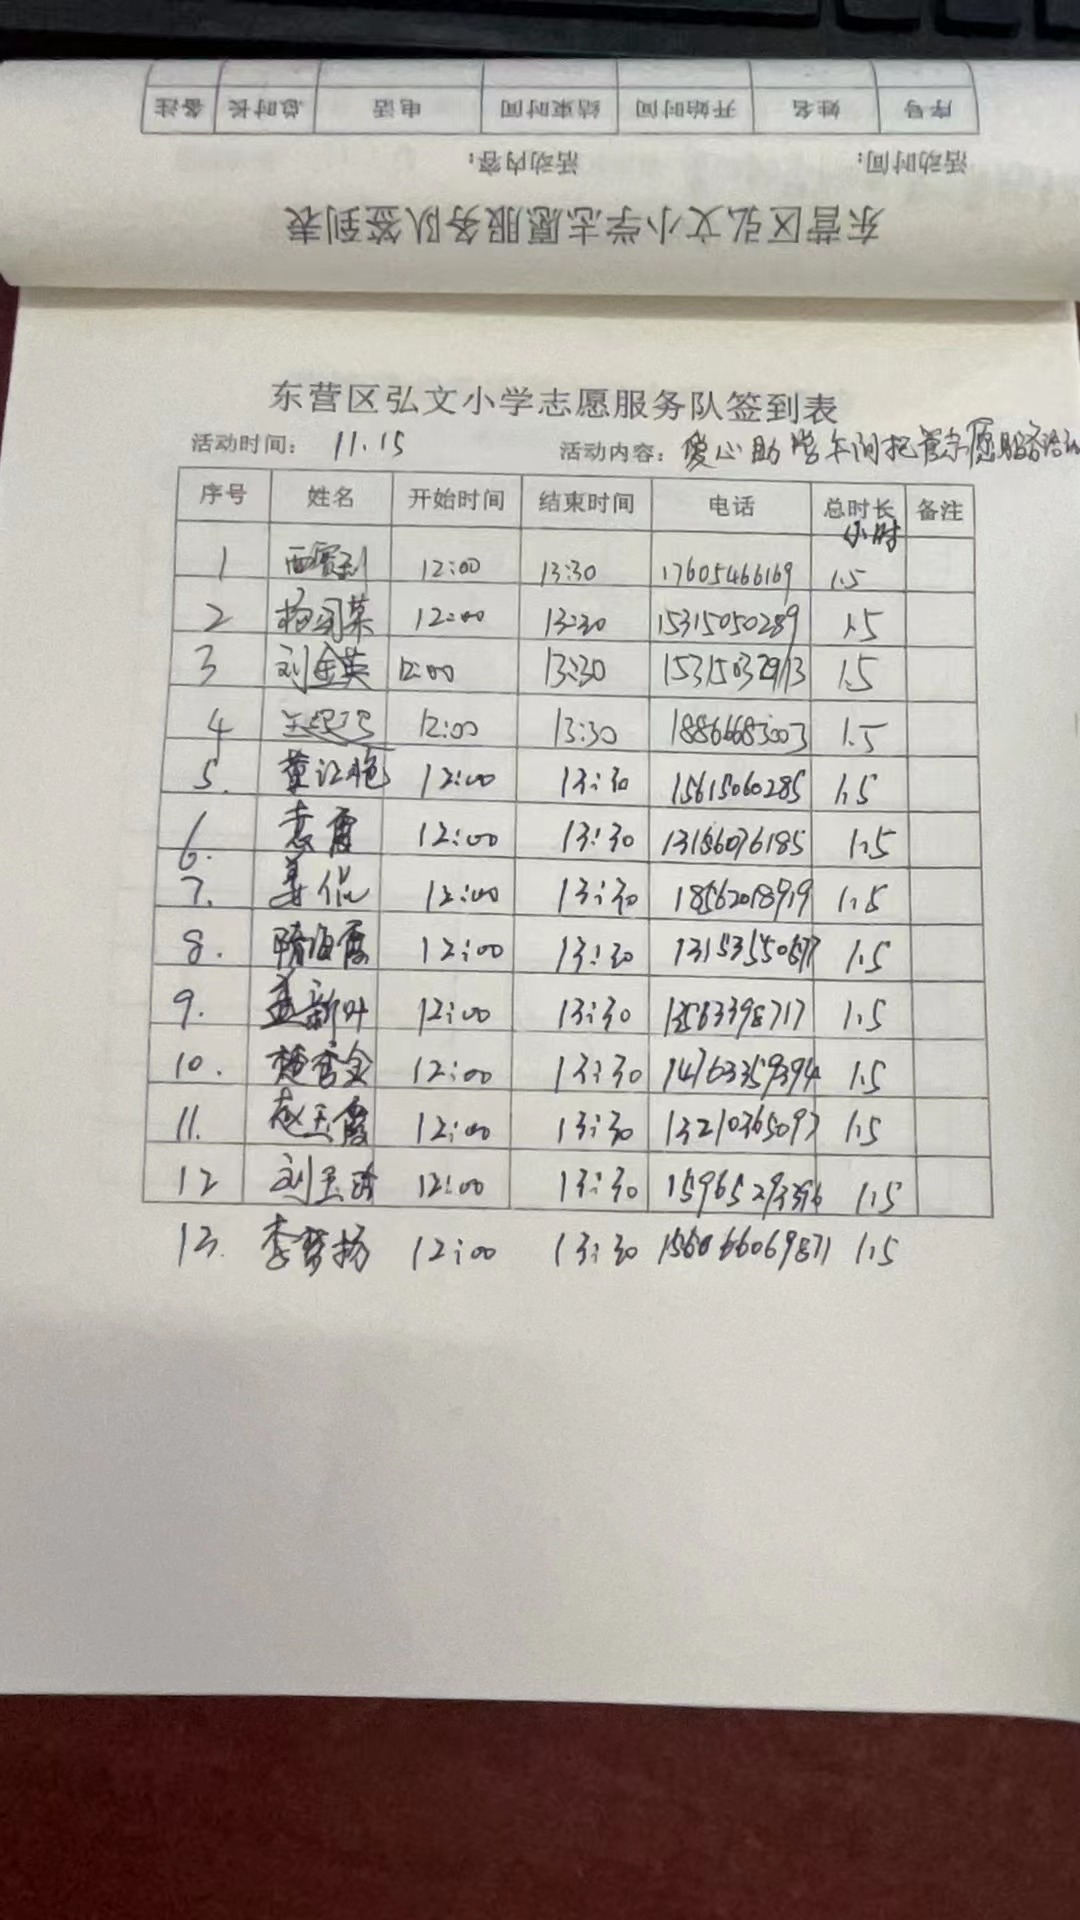 备注 总时长 电话 结束时间 开始时间 姓名 序号
活动内容： 活动时间：
东营区弘文小学志愿服务队签到表
东营区弘文小学志愿服务队签到表
活动时间： 11.15 活动内容： 爱心助学午间托管志愿服务活动
序号 姓名 开始时间 结束时间 电话 总时长 备注
小时
1 12:00 13:30 17605466169 1.5
2 12:00 13:30 15315050289 1.5
3 刘金英 12:00 13:30 1.5
4 12:00 13:30 18866683003 1.5
5. 董江艳 12:00 13:30 15615060285 1.5
6. 袁霞 12:00 13:30 1.5
7. 姜侃 12:00 13:30 18562018919 1.5
8. 隋海霞 12:00 13:30 1.5
9. 孟新叶 12:00 13:30 13563398717 1.5
10. 楚秀金 12:00 13:30 14763359394 1.5
11. 赵玉霞 12:00 13:30 13210365097 1.5
12 刘玉珍 12:00 13:30 1.5
13. 李梦扬 12:00 13:30 1.5